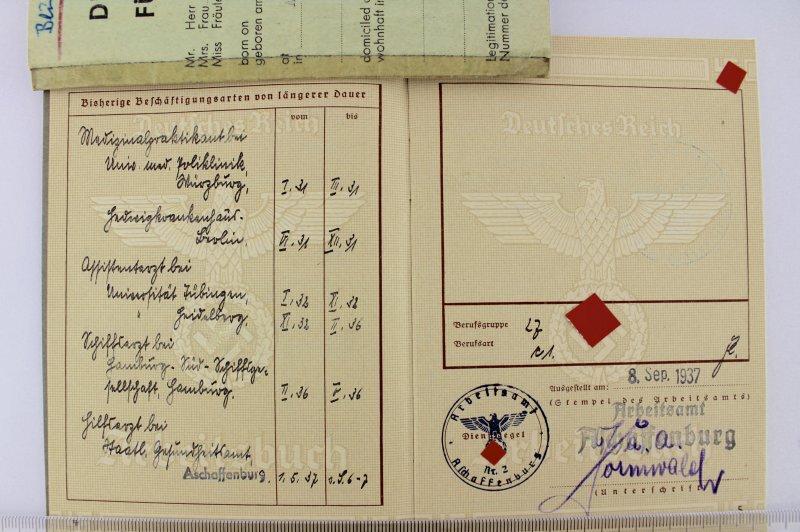 Bez
D
FÜ
Mr. Herr
Mrs. Frau
Miss Fräule
born on
geboren am
at
in
domiciled a
wohnhaft in
Legitimation
Nummer de
Bisherige Beschäftigungsarten von längerer Dauer
vom bis
Medizinalpraktikant bei
Univ. med. Poliklinik,
Würzburg, I. 31
Hedwigkrankenhaus-
Berlin. XII. 31
Assistenzarzt bei
Universität Tübingen, I. 32
" Heidelberg. XI. 32 II. 36
Schiffsarzt bei
Hamburg-Süd-Schiffsge-
sellschaft, Hamburg. II. 36
Hilfsarzt bei
Staatl. Gesundheitsamt
Aschaffenburg. 1. 5. 37 s. S. 6-7
Deutsches Reich
Deutsches Reich
Berufsgruppe 27
Berufsart c1.
Ausgestellt am: 8. Sep. 1937
(Stempel des Arbeitsamts)
Arbeitsamt
Aschaffenburg
Arbeitsamt
Dienstsiegel
Nr. 2
Aschaffenburg
J. A.
(Unterschrift)
4
5